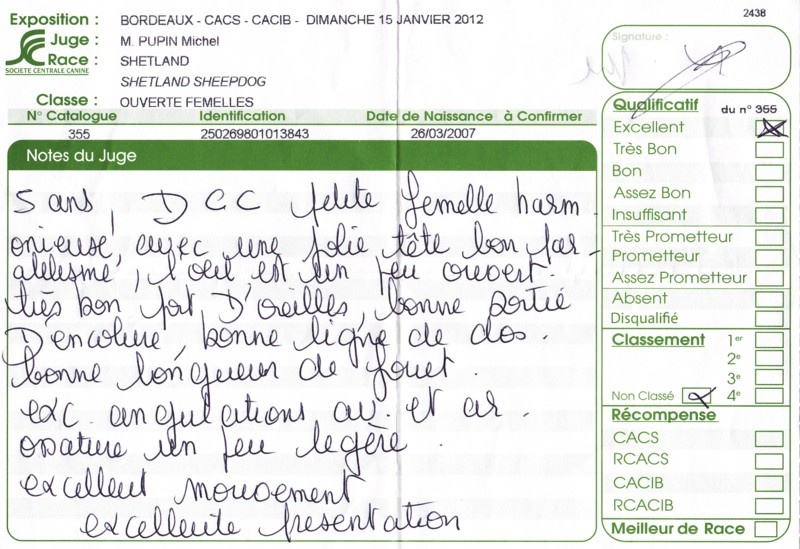 2438
Exposition : BORDEAUX - CACS - CACIB - DIMANCHE 15 JANVIER 2012
Juge : M. PUPIN Michel
Race : SHETLAND
SOCIETE CENTRALE CANINE
SHETLAND SHEEPDOG
Classe : OUVERTE FEMELLES
N° Catalogue Identification Date de Naissance à Confirmer
355 250269801013843 26/03/2007
Notes du Juge
5 ans, DCC petite femelle harm
onieuse, avec une jolie tête bon par-
allelisme, l'oeil est un peu ouvert.
très bon port D'oreilles, bonne sortie
D'encolure, bonne ligne de dos.
bonne longueur de fouet.
exc. angulations av et ar.
ossature un peu legère.
excellent mouvement
excellente presentation
Signature :
Qualificatif du n° 355
Excellent
Très Bon
Bon
Assez Bon
Insuffisant
Très Prometteur
Prometteur
Assez Prometteur
Absent
Disqualifié
Classement 1er
2e
3e
Non Classé 4e
Récompense
CACS
RCACS
CACIB
RCACIB
Meilleur de Race